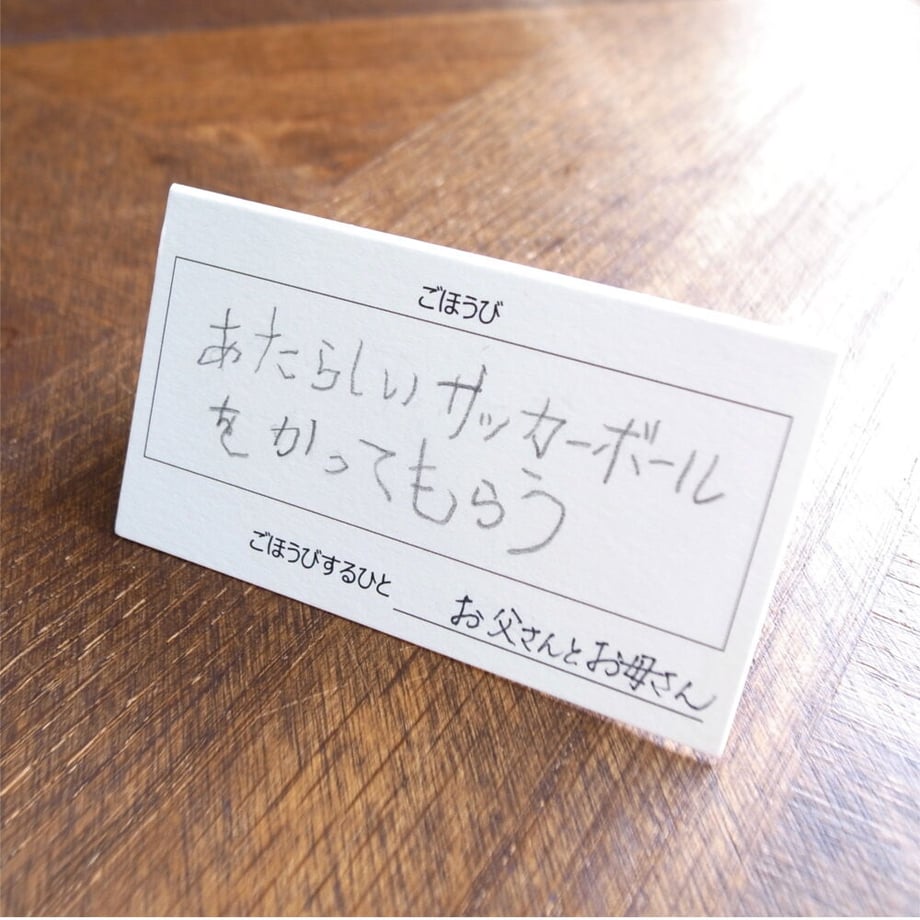 ごほうび
あたらしいサッカーボール
をかってもらう
ごほうびするひと お父さんとお母さん